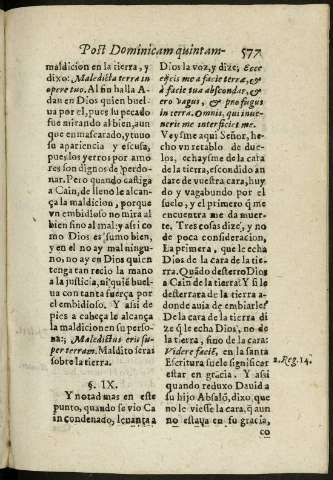 Post Dominicam quintam-
577
maldicion en la tierra, y
dixo: Maledicta terra in
opere tuo. Al fin halla A-
dan en Dios quien buel-
ua por el, pues su pecado
fue mirando al bien, aun
que enmascarado, y tuuo
su apariencia y escusa,
pues los yerros por amo-
res son dignos de perdo-
nar. Pero quando castiga
a Cain, de lleno le alcan-
ça la maldicion, porque
vn embidioso no mira al
bien sino al mal: y assi co
mo Dios es sumo bien,
y en el no ay mal ningu-
no, no ay en Dios quien
tenga tan recio la mano
a la justicia, ni quiē buel-
ua con tanta fuerça por
el embidioso. Y assi de
pies a cabeça le alcança
la maldicion en su perso-
na: Maledictus eris su-
per terram. Maldito seras
sobre la tierra.
§. IX.
Y notad mas en este
punto, quando se vio Ca
in condenado, leuanta a
Dios la voz, y dize; Ecce
eijcis me a facie terræ, &
à facie tua abscondar, &
ero vagus, & profugus
in terra. Omnis, qui inue-
nerit me interficiet me.
Veysme aqui Señor, he-
cho vn retablo de due-
los, echaysme de la cara
de la tierra, escondido an
daré de vuestra cara, huy
do y vagabundo por el
suelo, y el primero q̃ me
encuentra me da muer-
te. Tres cosas dize, y no
de poca consideracion.
La primera, que le echa
Dios de la cara de la tier-
ra. Quãdo desterrò Dios
a Cain de la tierra? Y si le
desterrara de la tierra a-
donde auia de embiarle?
De la cara de la tierra di
ze q̃ le echa Dios, no de
la tierra, sino de la cara:
Videre faciẽ, en la santa
Escritura suele significar
estar en gracia. Y assi
quando reduxo Dauid a
su hijo Absalõ, dixo, que
no le viesse la cara, q̃ aun
no estaua en su gracia,
co
2. Reg. 14.